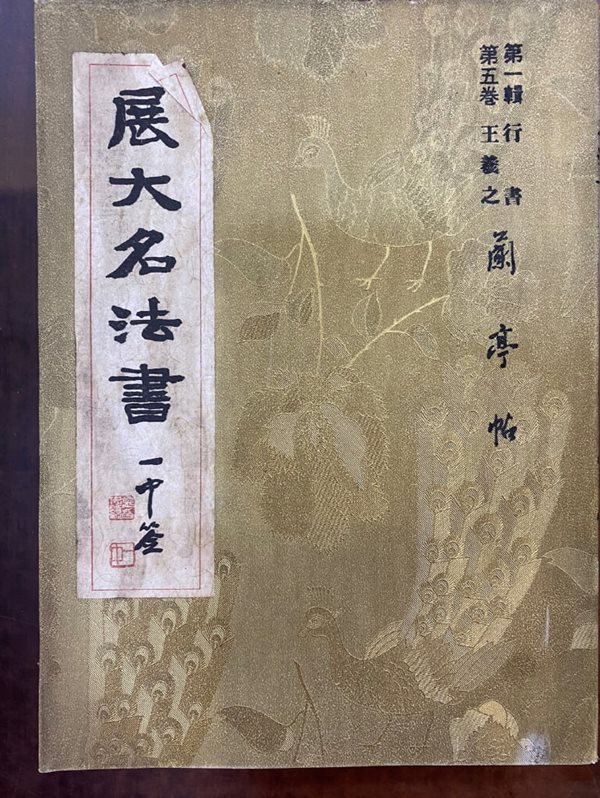 第一輯 行書
第五卷 王羲之
蘭亭帖
展大名法書
一中簽